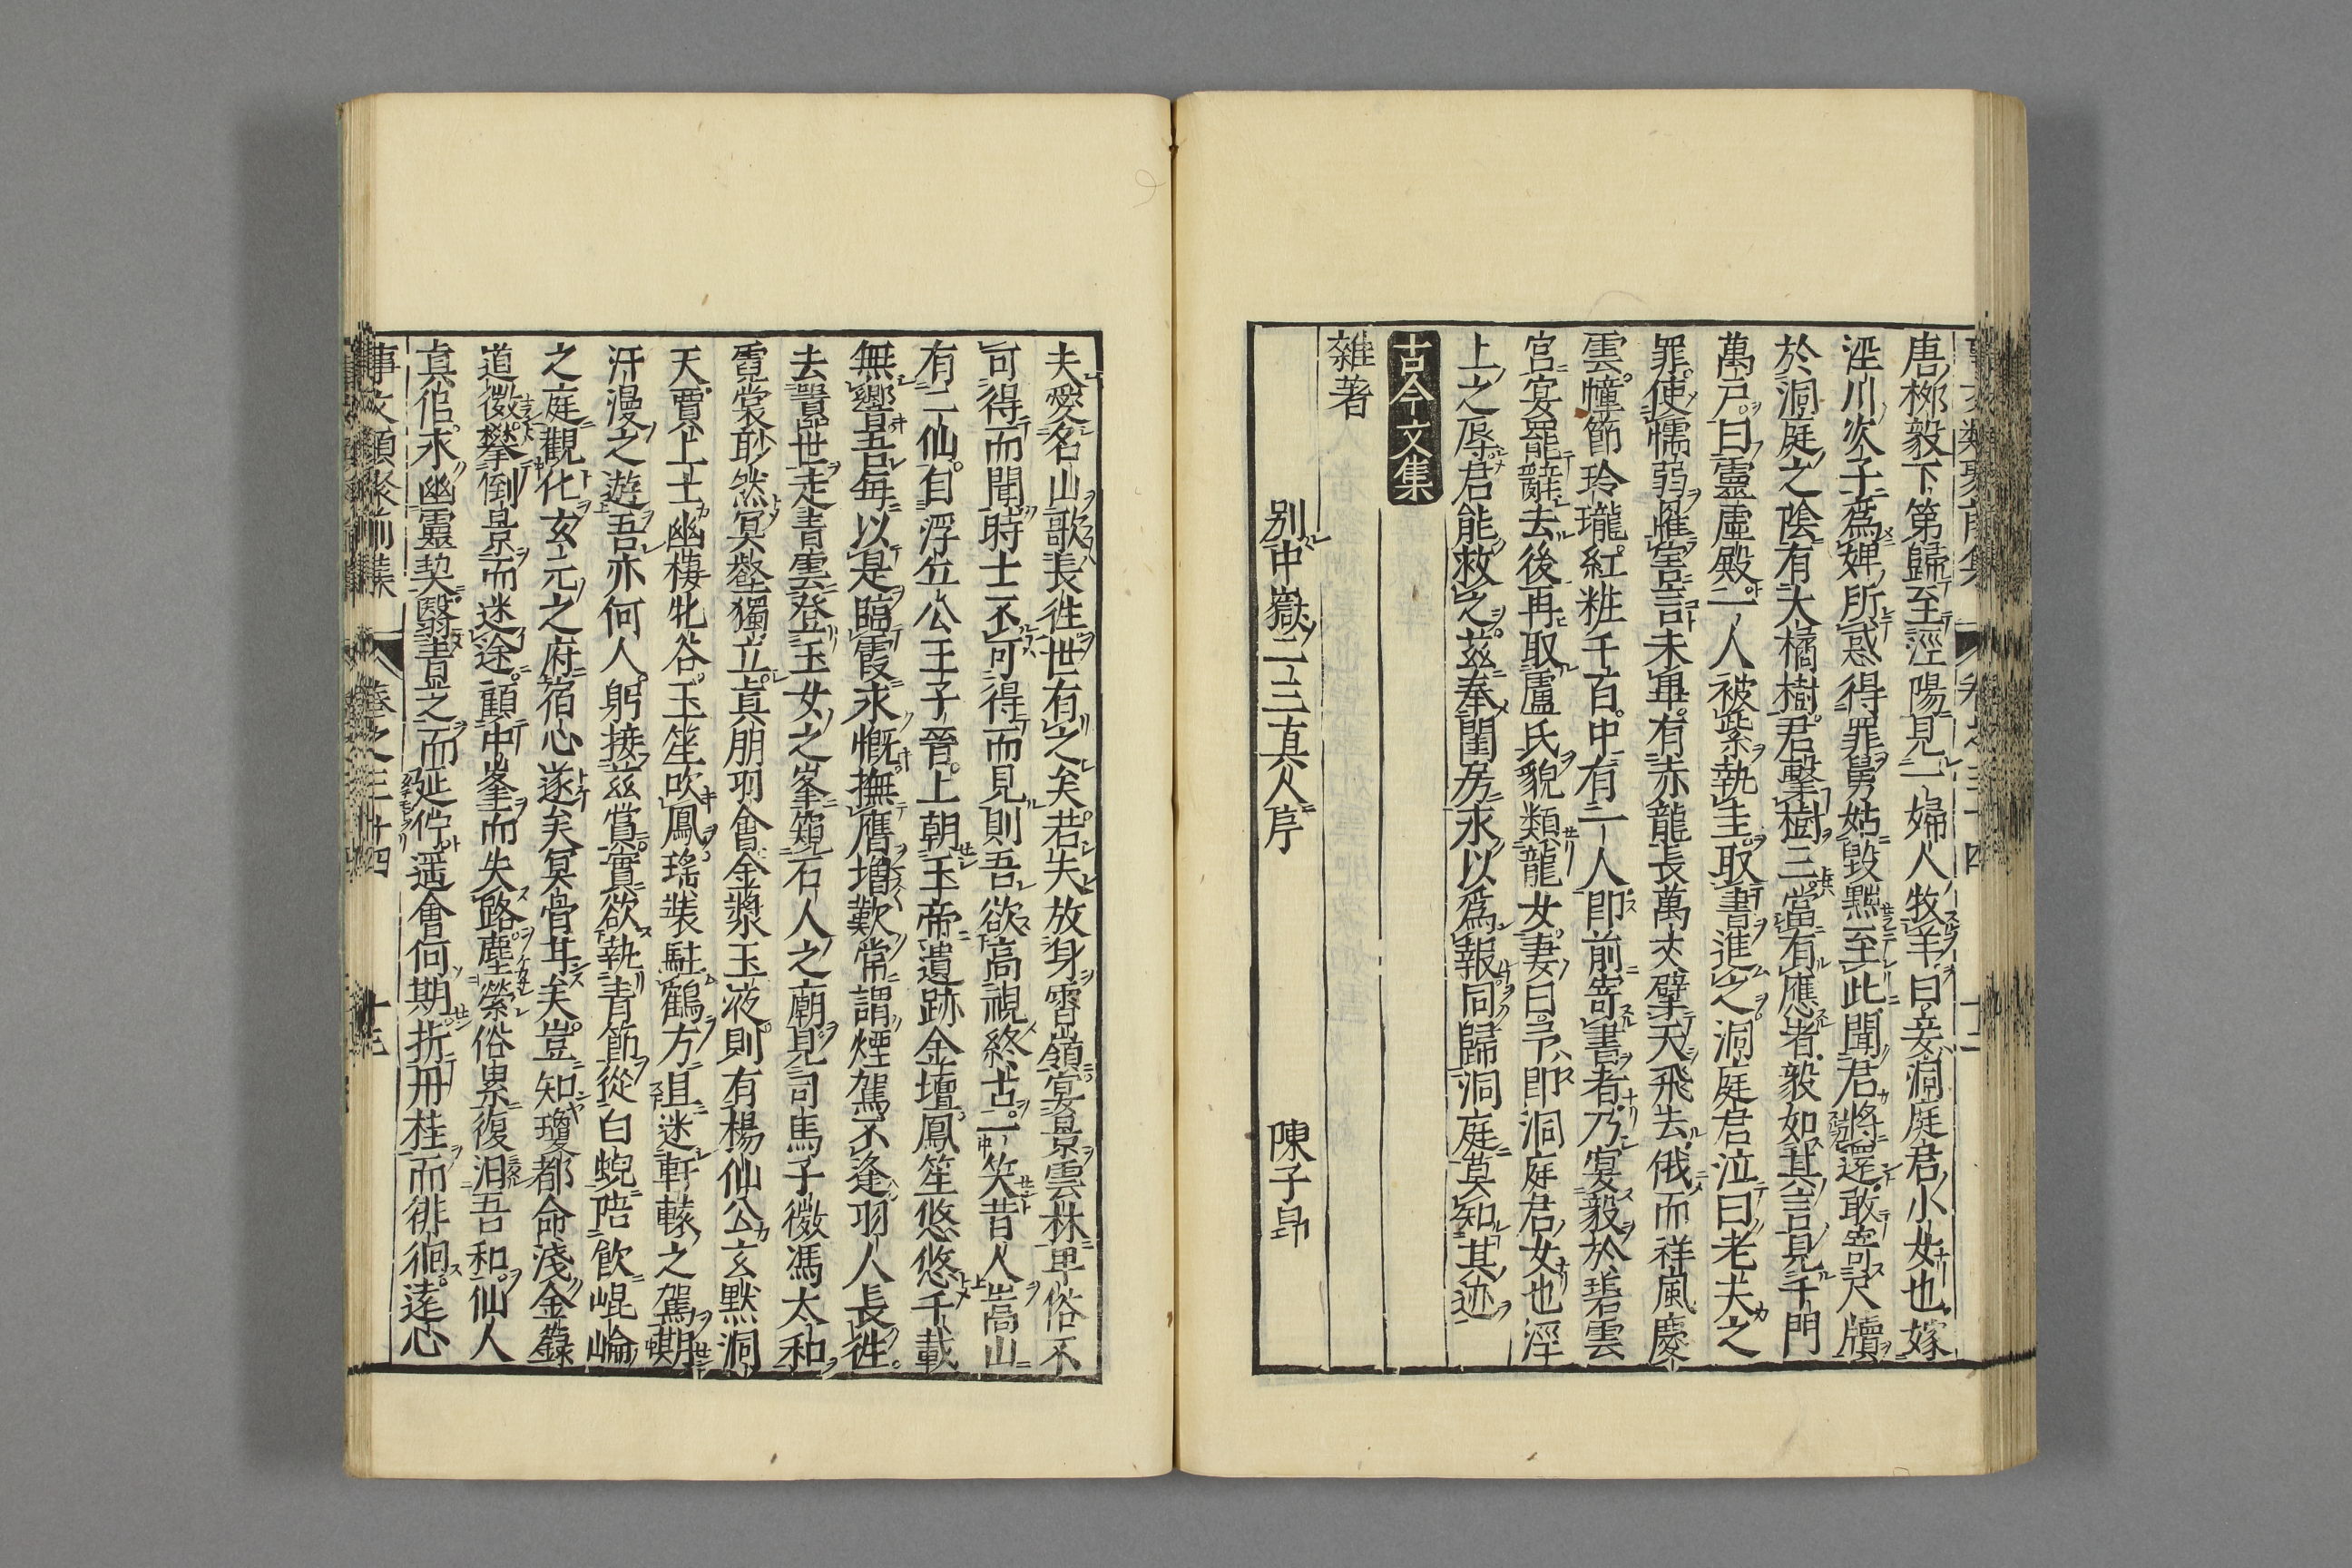 唐柳毅下第歸至涇陽見一婦人牧羊曰妾洞庭君小女也嫁
涇川次子爲婢所惑得罪舅姑毀黜至此聞君將還敢寄尺牘
於洞庭之陰有大橘樹君擊樹三當有應者毅如其言見千門
萬戸曰靈虛殿一人被紫執圭取書進之洞庭君泣曰老夫之
罪使懦弱罹害言未畢有赤龍長萬丈擘天飛去俄而祥風慶
雲幢節玲瓏紅粧千百中有一人卽前寄書者乃宴毅於碧雲
宮宴罷辭去後再取盧氏貌類龍女妻曰予卽洞庭君女也涇
上之辱君能救之茲奉閨房永以爲報同歸洞庭莫知其迹
古今文集
雜著
別中嶽二三真人序 陳子昻
夫愛名山歌長徃世有之矣若失放身霄嶺宴景雲林卑俗不
可得而聞時士不可得而見則吾欲高視終古一笑昔人嵩山
有二仙自浮丘公王子晉上朝玉帝遺跡金壇鳳笙悠悠千載
無響吾每以是臨霞永慨撫膺增歎常謂煙駕不逢羽人長徃
去囂世走青雲登玉女之峯窺石人之廟見司馬子微馮太和
霓裳眇然冥壑獨立真朋羽會金漿玉液則有楊仙公玄默洞
天賈上士幽棲牝谷玉笙吹鳳瑤裝駐鶴方且迷軒轅之駕期
汗漫之遊吾亦何人躬接茲賞實欲執青節從白蜺陪飮崐崘
之庭觀化玄元之府宿心遂矣冥骨甘矣豈知瓊都命淺金籙
道微攀倒景而迷途顧中峯而失路塵縈俗累復汨吾和仙人
真侶永幽靈契翳青鳥之而延佇遥會何期折丹桂而徘徊遠心
事文類聚前集 卷之三十四 十三